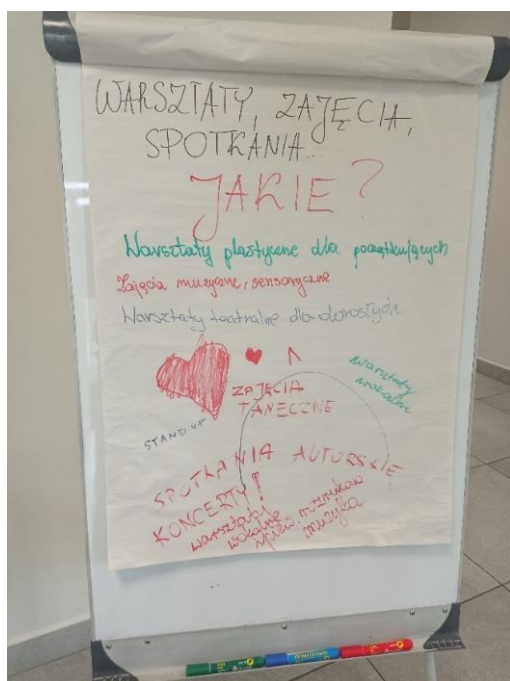 WARSZTATY, ZAJĘCIA,
SPOTKANIA...
JAKIE?
Warsztaty plastyczne dla początkujących
Zajęcia muzyczne, sensoryczne
Warsztaty teatralne dla dorosłych
ZAJĘCIA
TANECZNE
warsztaty
wokalne
STAND UP
SPOTKANIA AUTORSKIE
KONCERTY!
warsztaty
wokalne
śpiew. rozrywkowa
muzyka